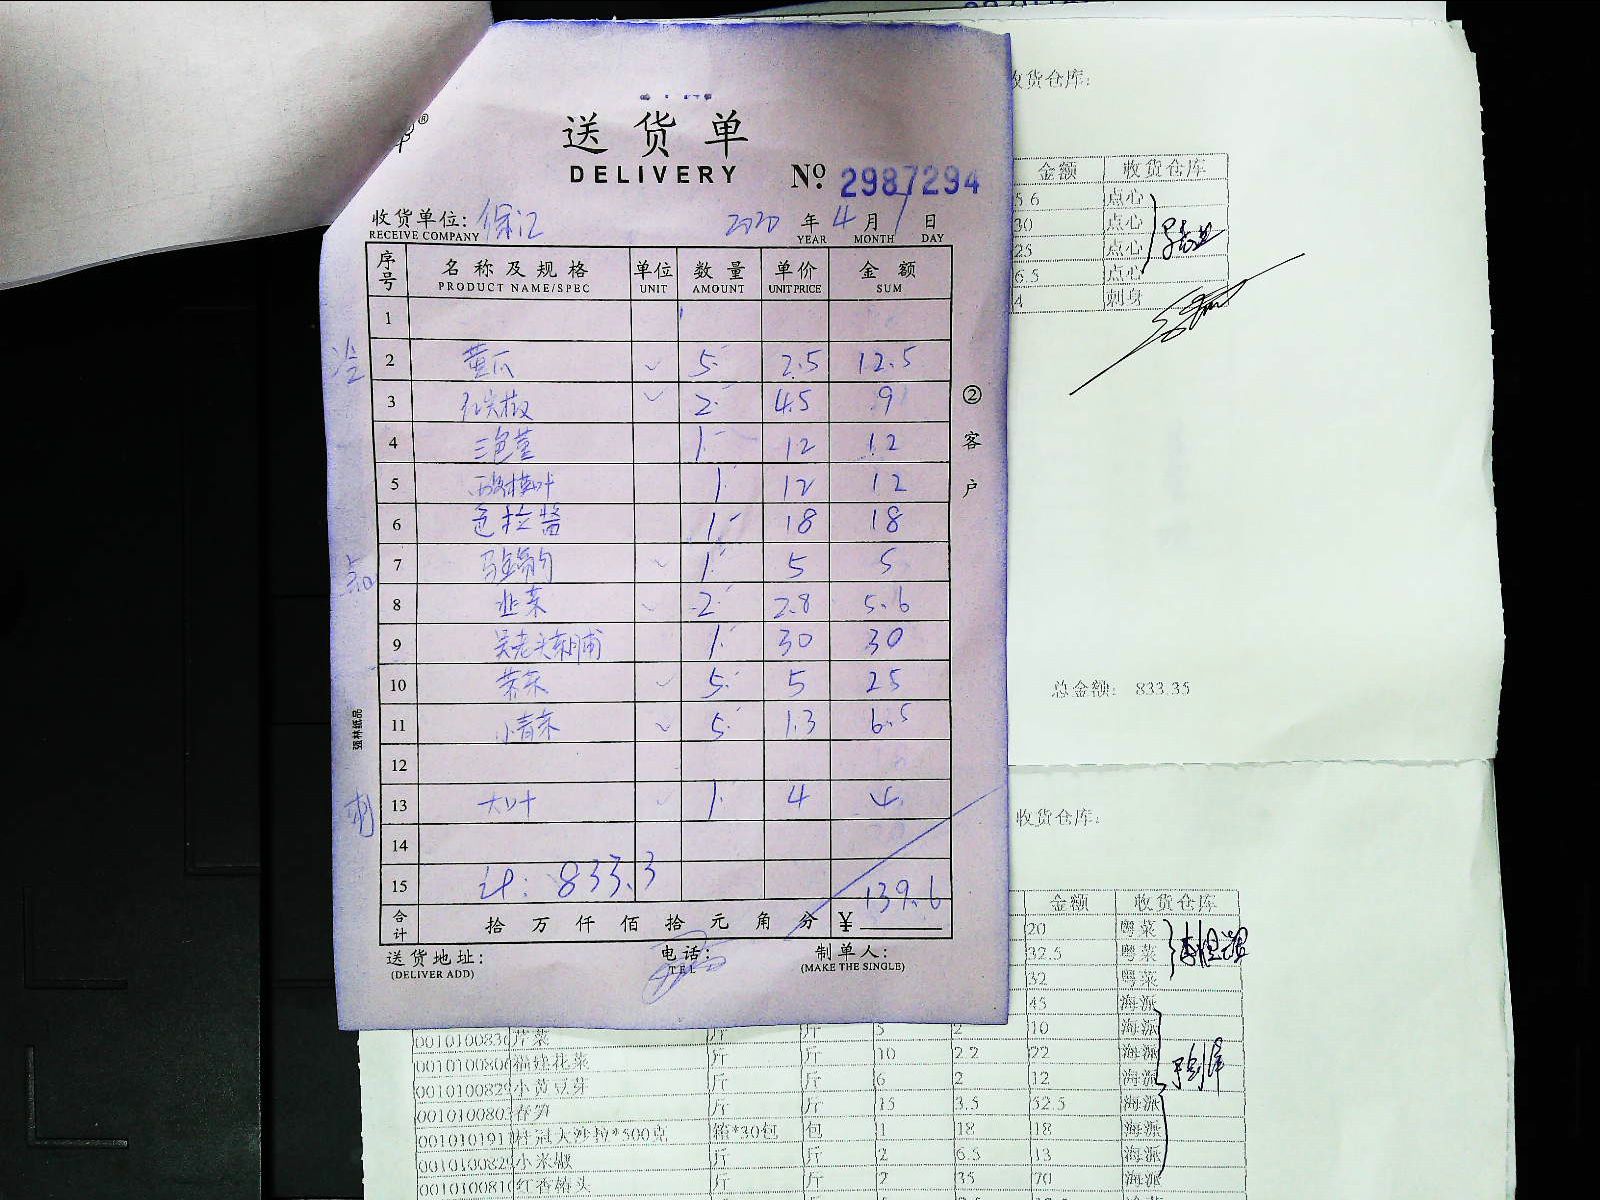 送货单
DELIVERY
№ 2987294
收货单位:
RECEIVE COMPANY
2020 年 4 月 1 日
YEAR MONTH DAY
序号 名称及规格 单位 数量 单价 金额
PRODUCT NAME/SPEC UNIT AMOUNT UNIT PRICE SUM
1
冷
2 黄瓜 5 2.5 12.5
3 红尖椒 2 4.5 9
4 1 12 12
5 1 12 12
6 色拉酱 1 18 18
点
7 1 5 5
8 韭菜 2 2.8 5.6
9 1 30 30
10 5 5 25
11 小青菜 5 1.3 6.5
12
刺
13 大叶 1 4 4
14
15 计: 833.3
139.6
合计 拾 万 仟 佰 拾 元 角 分 ¥
送货地址:
(DELIVER ADD)
电话:
TEL
制单人:
(MAKE THE SINGLE)
②客户
强林纸品
收货仓库:
金额 收货仓库
5.6 点心
30 点心
25 点心
6.5 点心
4 刺身
总金额: 833.35
收货仓库:
金额 收货仓库
20 粤菜
32.5 粤菜
32 粤菜
45 海派
芹菜 斤 斤 5 2 10 海派
福建花菜 斤 斤 10 2.2 22 海派
小黄豆芽 斤 斤 6 2 12 海派
春笋 斤 斤 15 3.5 52.5 海派
桂冠大沙拉*500克 箱*30包 包 1 18 18 海派
小米椒 斤 斤 2 6.5 13 海派
红香椿头 斤 斤 2 35 70 海派